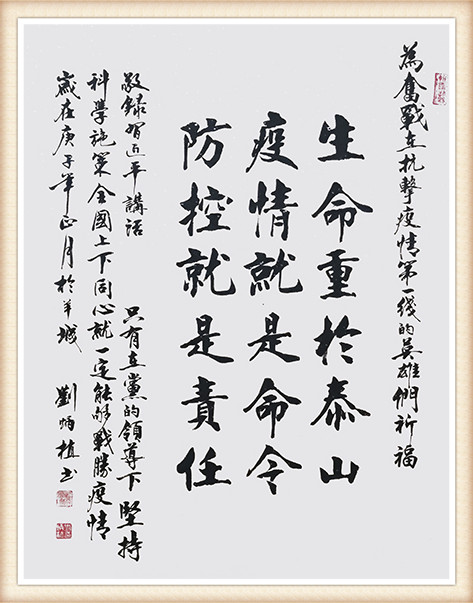 為奮戰在抗擊疫情第一綫的英雄們祈福
生命重於泰山
疫情就是命令
防控就是責任
敬錄習近平講話 只有在黨的領導下堅持
科學施策全國上下同心就一定能夠戰勝疫情
歲在庚子年正月於羊城 劉炳植书